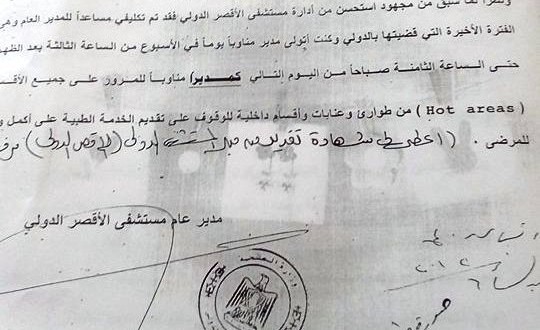 ونظراً لما سبق من مجهود استحسن من أدارة مستشفى الأقصر الدولي فقد تم تكليفي مساعداً للمدير العام وهي
الفترة الأخيرة التي قضيتها بالدولي وكنت أتولى مدير مناوباً يوماً في الأسبوع من الساعة الثالثة بعد الظهر
حتى الساعة الثامنة صباحاً من اليوم التالي كمديرا مناوباً للمرور على جميع الأقس
( Hot areas ) من طوارئ وعنايات وأقسام داخلية للوقوف على تقديم الخدمة الطبية على أكمل و
للمرضى . ( اعطى لى شهادة تقدير من الدولى ( الاقصر الدولى )
مدير عام مستشفى الأقصر الدولي
وزارة الصحة